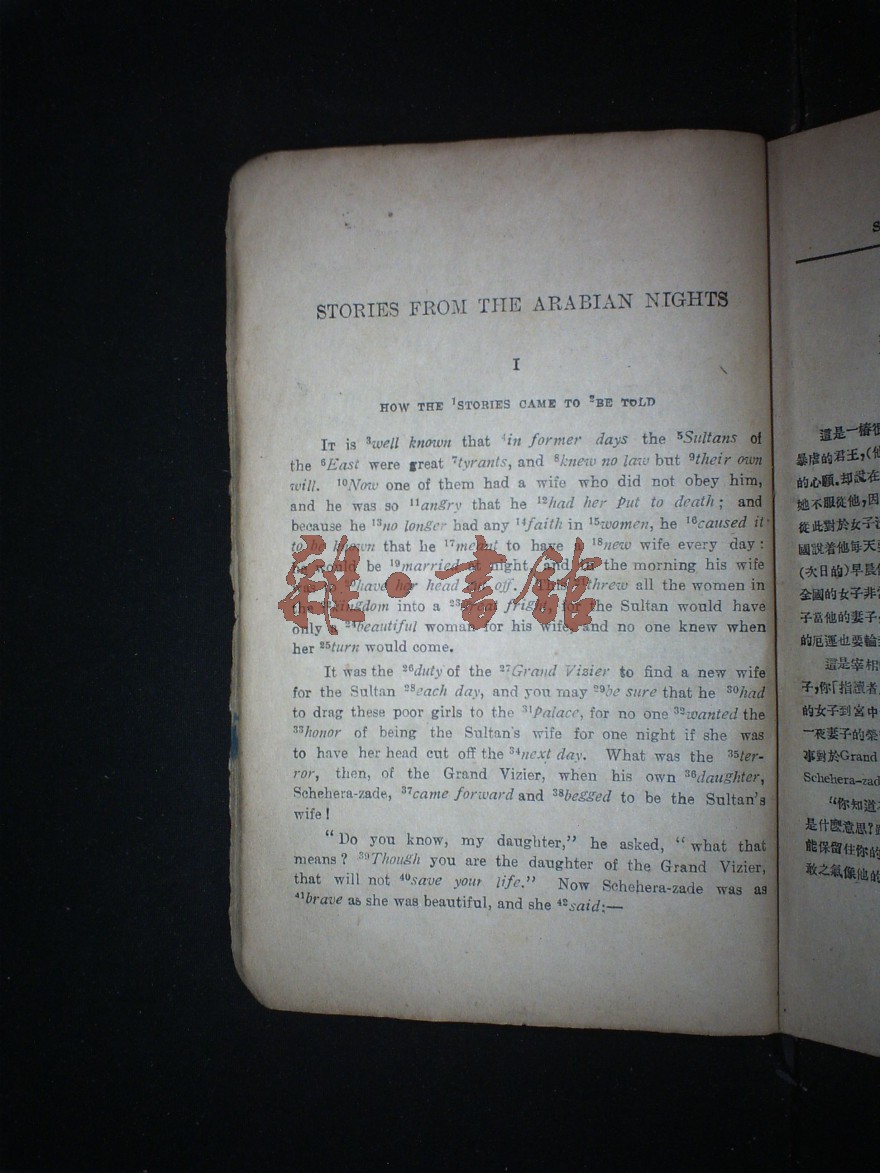 STORIES FROM THE ARABIAN NIGHTS
I
HOW THE ¹STORIES CAME TO ²BE TOLD
IT is ³well known that ⁴in former days the ⁵Sultans of
the ⁶East were great ⁷tyrants, and ⁸knew no law but ⁹their own
will. ¹⁰Now one of them had a wife who did not obey him,
and he was so ¹¹angry that he ¹²had her put to death; and
because he ¹³no longer had any ¹⁴faith in ¹⁵women, he ¹⁶caused it
to be known that he ¹⁷meant to have a ¹⁸new wife every day:
he would be ¹⁹married at night, and in the morning his wife
was to ²⁰have her head cut off. This ²¹threw all the women in
the ²²kingdom into a ²³great fright, for the Sultan would have
only a ²⁴beautiful woman for his wife, and no one knew when
her ²⁵turn would come.
It was the ²⁶duty of the ²⁷Grand Vizier to find a new wife
for the Sultan ²⁸each day, and you may ²⁹be sure that he ³⁰had
to drag these poor girls to the ³¹Palace, for no one ³²wanted the
³³honor of being the Sultan's wife for one night if she was
to have her head cut off the ³⁴next day. What was the ³⁵ter-
ror, then, of the Grand Vizier, when his own ³⁶daughter,
Schehera-zade, ³⁷came forward and ³⁸begged to be the Sultan's
wife!
"Do you know, my daughter," he asked, "what that
means? ³⁹Though you are the daughter of the Grand Vizier,
that will not ⁴⁰save your life." Now Schehera-zade was as
⁴¹brave as she was beautiful, and she ⁴²said:—
雜·書館
S
這是一樁很
暴虐的君王,(他
的心願.却說在
她不服從他,因
從此對於女子
國說着他每天
(次日的)早晨
全國的女子非
子當他的妻子
的厄運也要輪
這是宰相
子,你「指讀者」
的女子到宮中
一夜妻子的榮
事對於Grand
Schehera-zad
"你知道
是什麼意思?
能保留住你的
敢之氣像他的